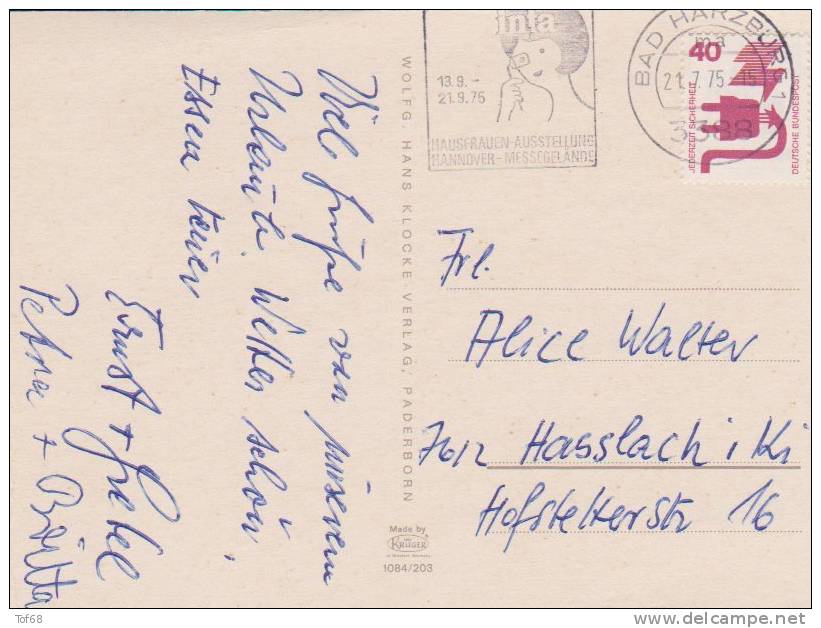 Viele Grüße von unserem
Urlaub. Wetter schön,
Essen teuer
Ernst + Gretel
Petra + Britta
WOLFG. HANS KLOCKE VERLAG, PADERBORN
infa
13.9. -
21.9.75
HAUSFRAUEN-AUSSTELLUNG
HANNOVER-MESSEGELÄNDE
BAD HARZBURG 1
ma
21.7.75-15
3388
40
JEDERZEIT SICHERHEIT
DEUTSCHE BUNDESPOST
Frl.
Alice Walter
7612 Hasslach i Ki
Hofstetterstr 16
Made by
KRÜGER
1084/203
Tof68
www.delcampe.net